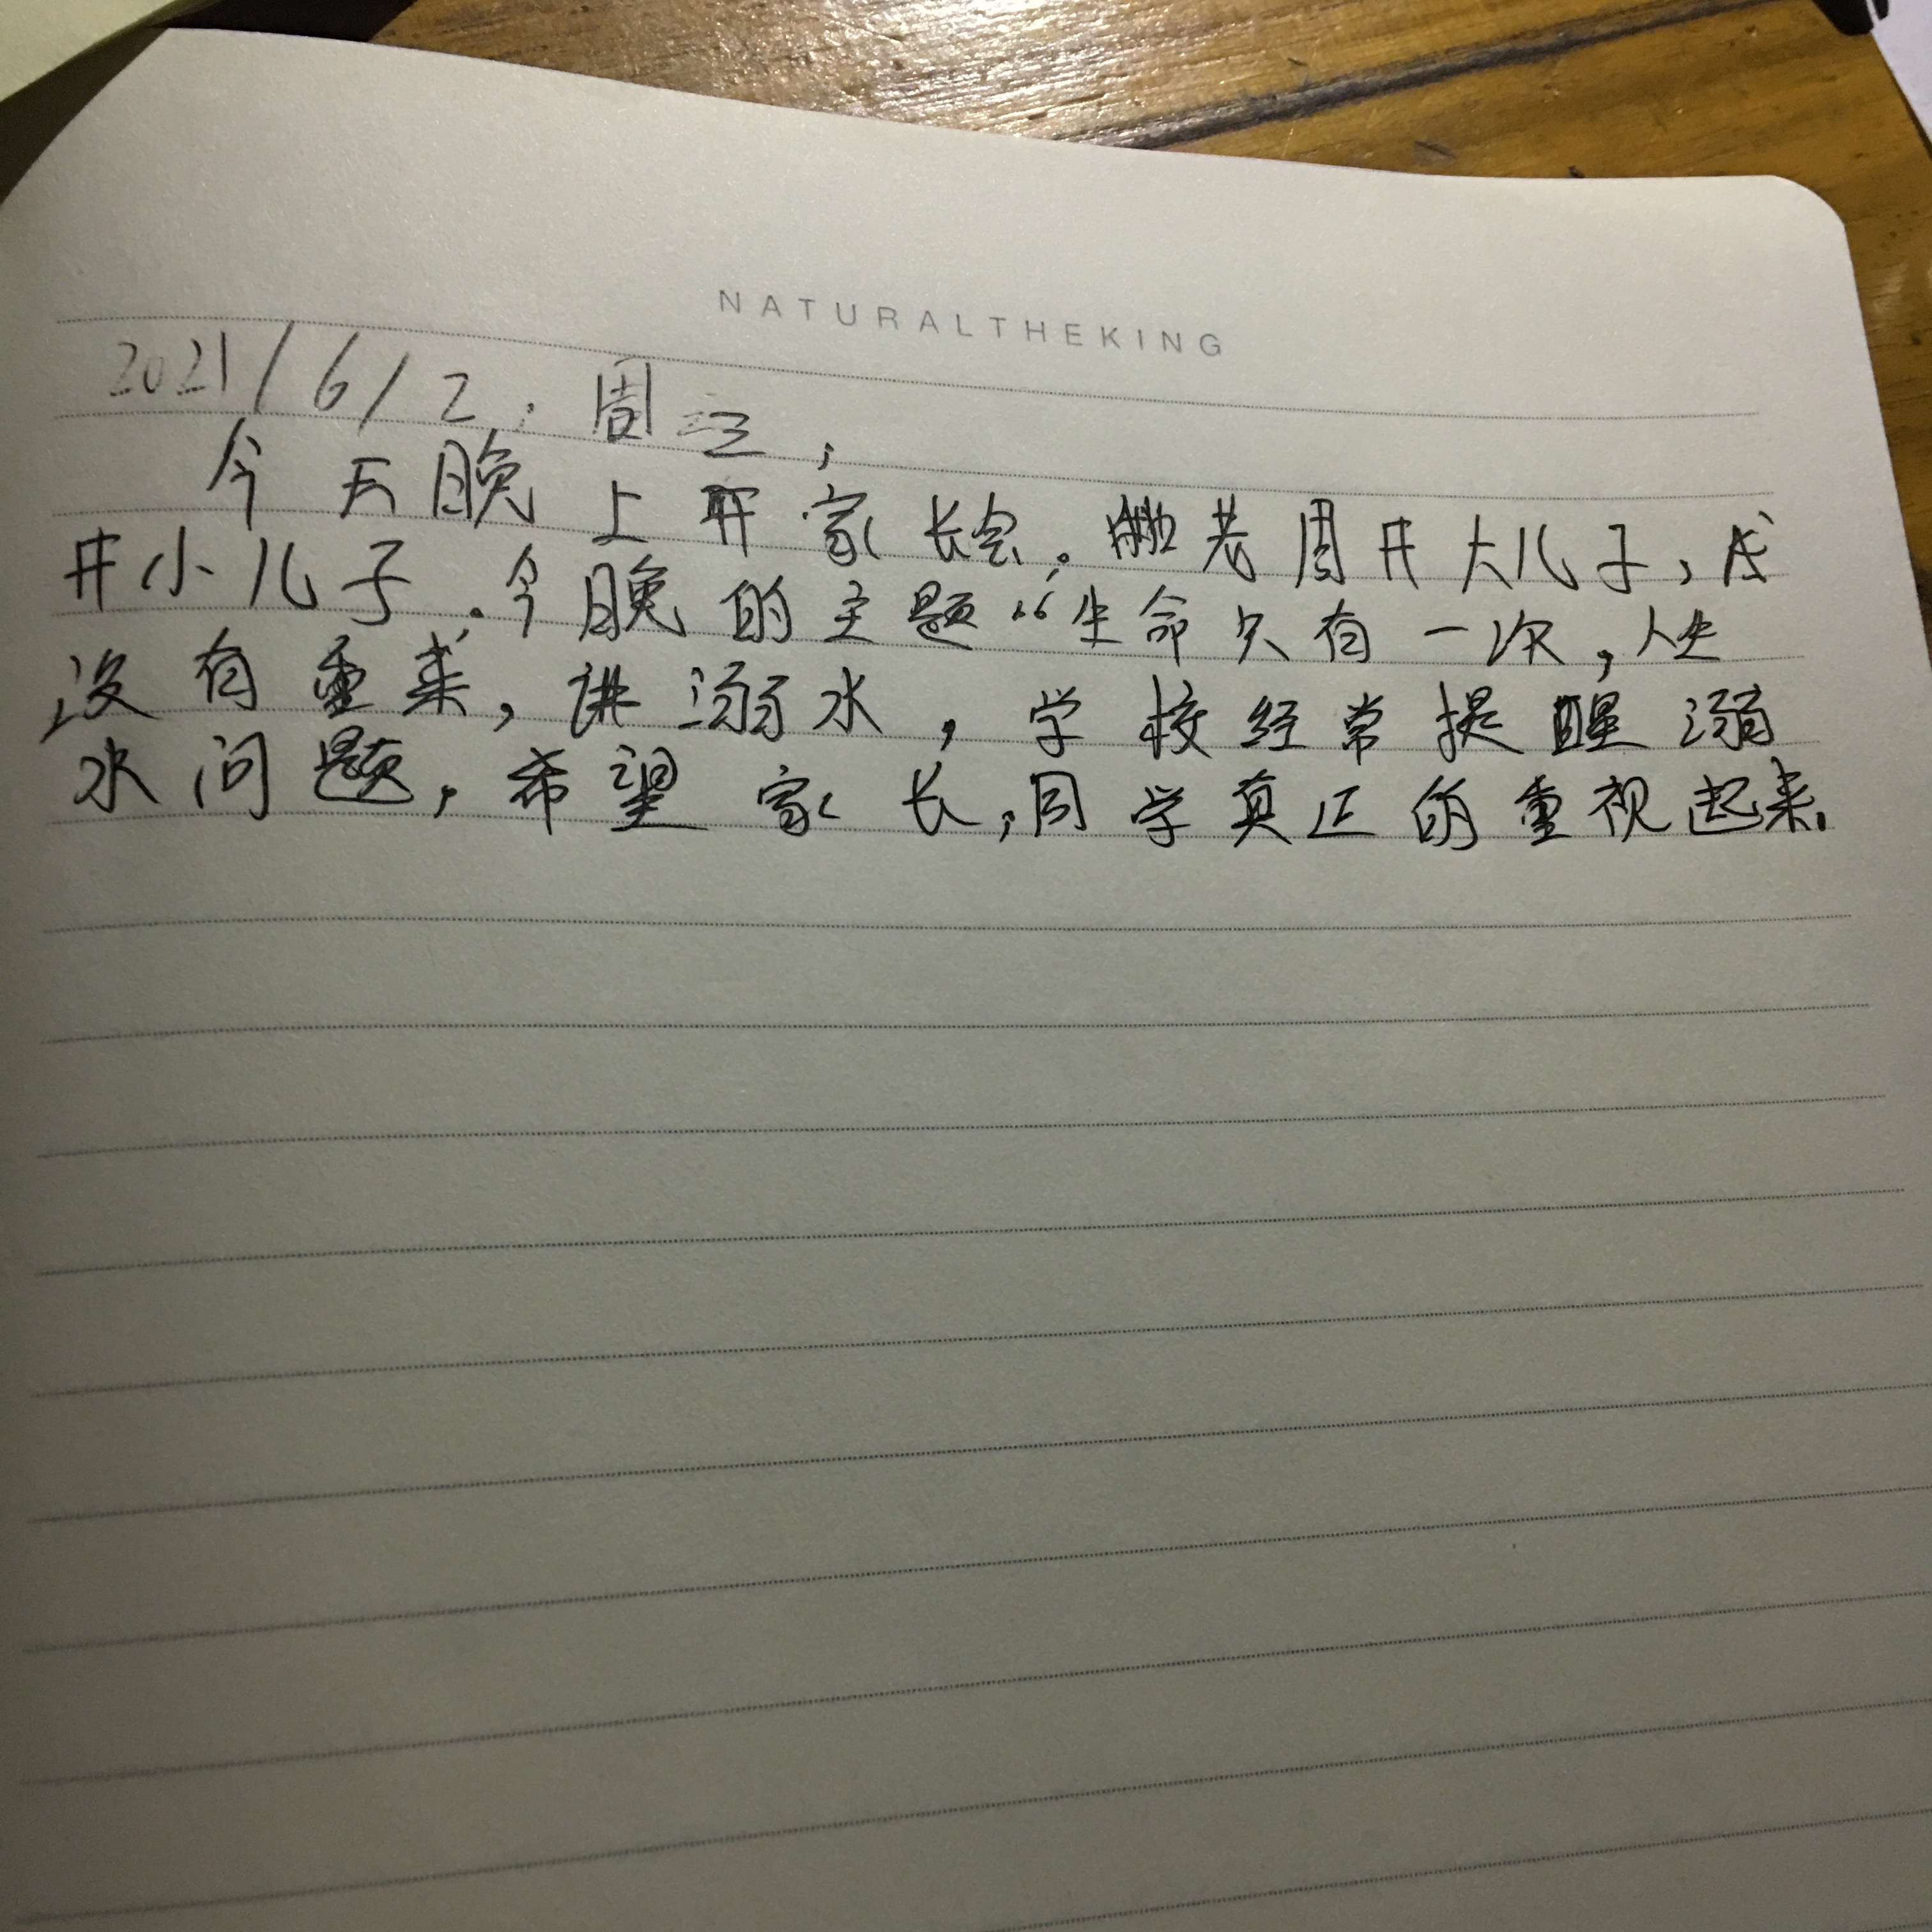 NATURALTHEKING
2021/6/2,周三,
今天晚上开家长会。老周开大儿子,我
开小儿子.今晚的主题“生命只有一次,人生
没有重来,讲溺水,学校经常提醒溺
水问题,希望家长,同学真正的重视起来.